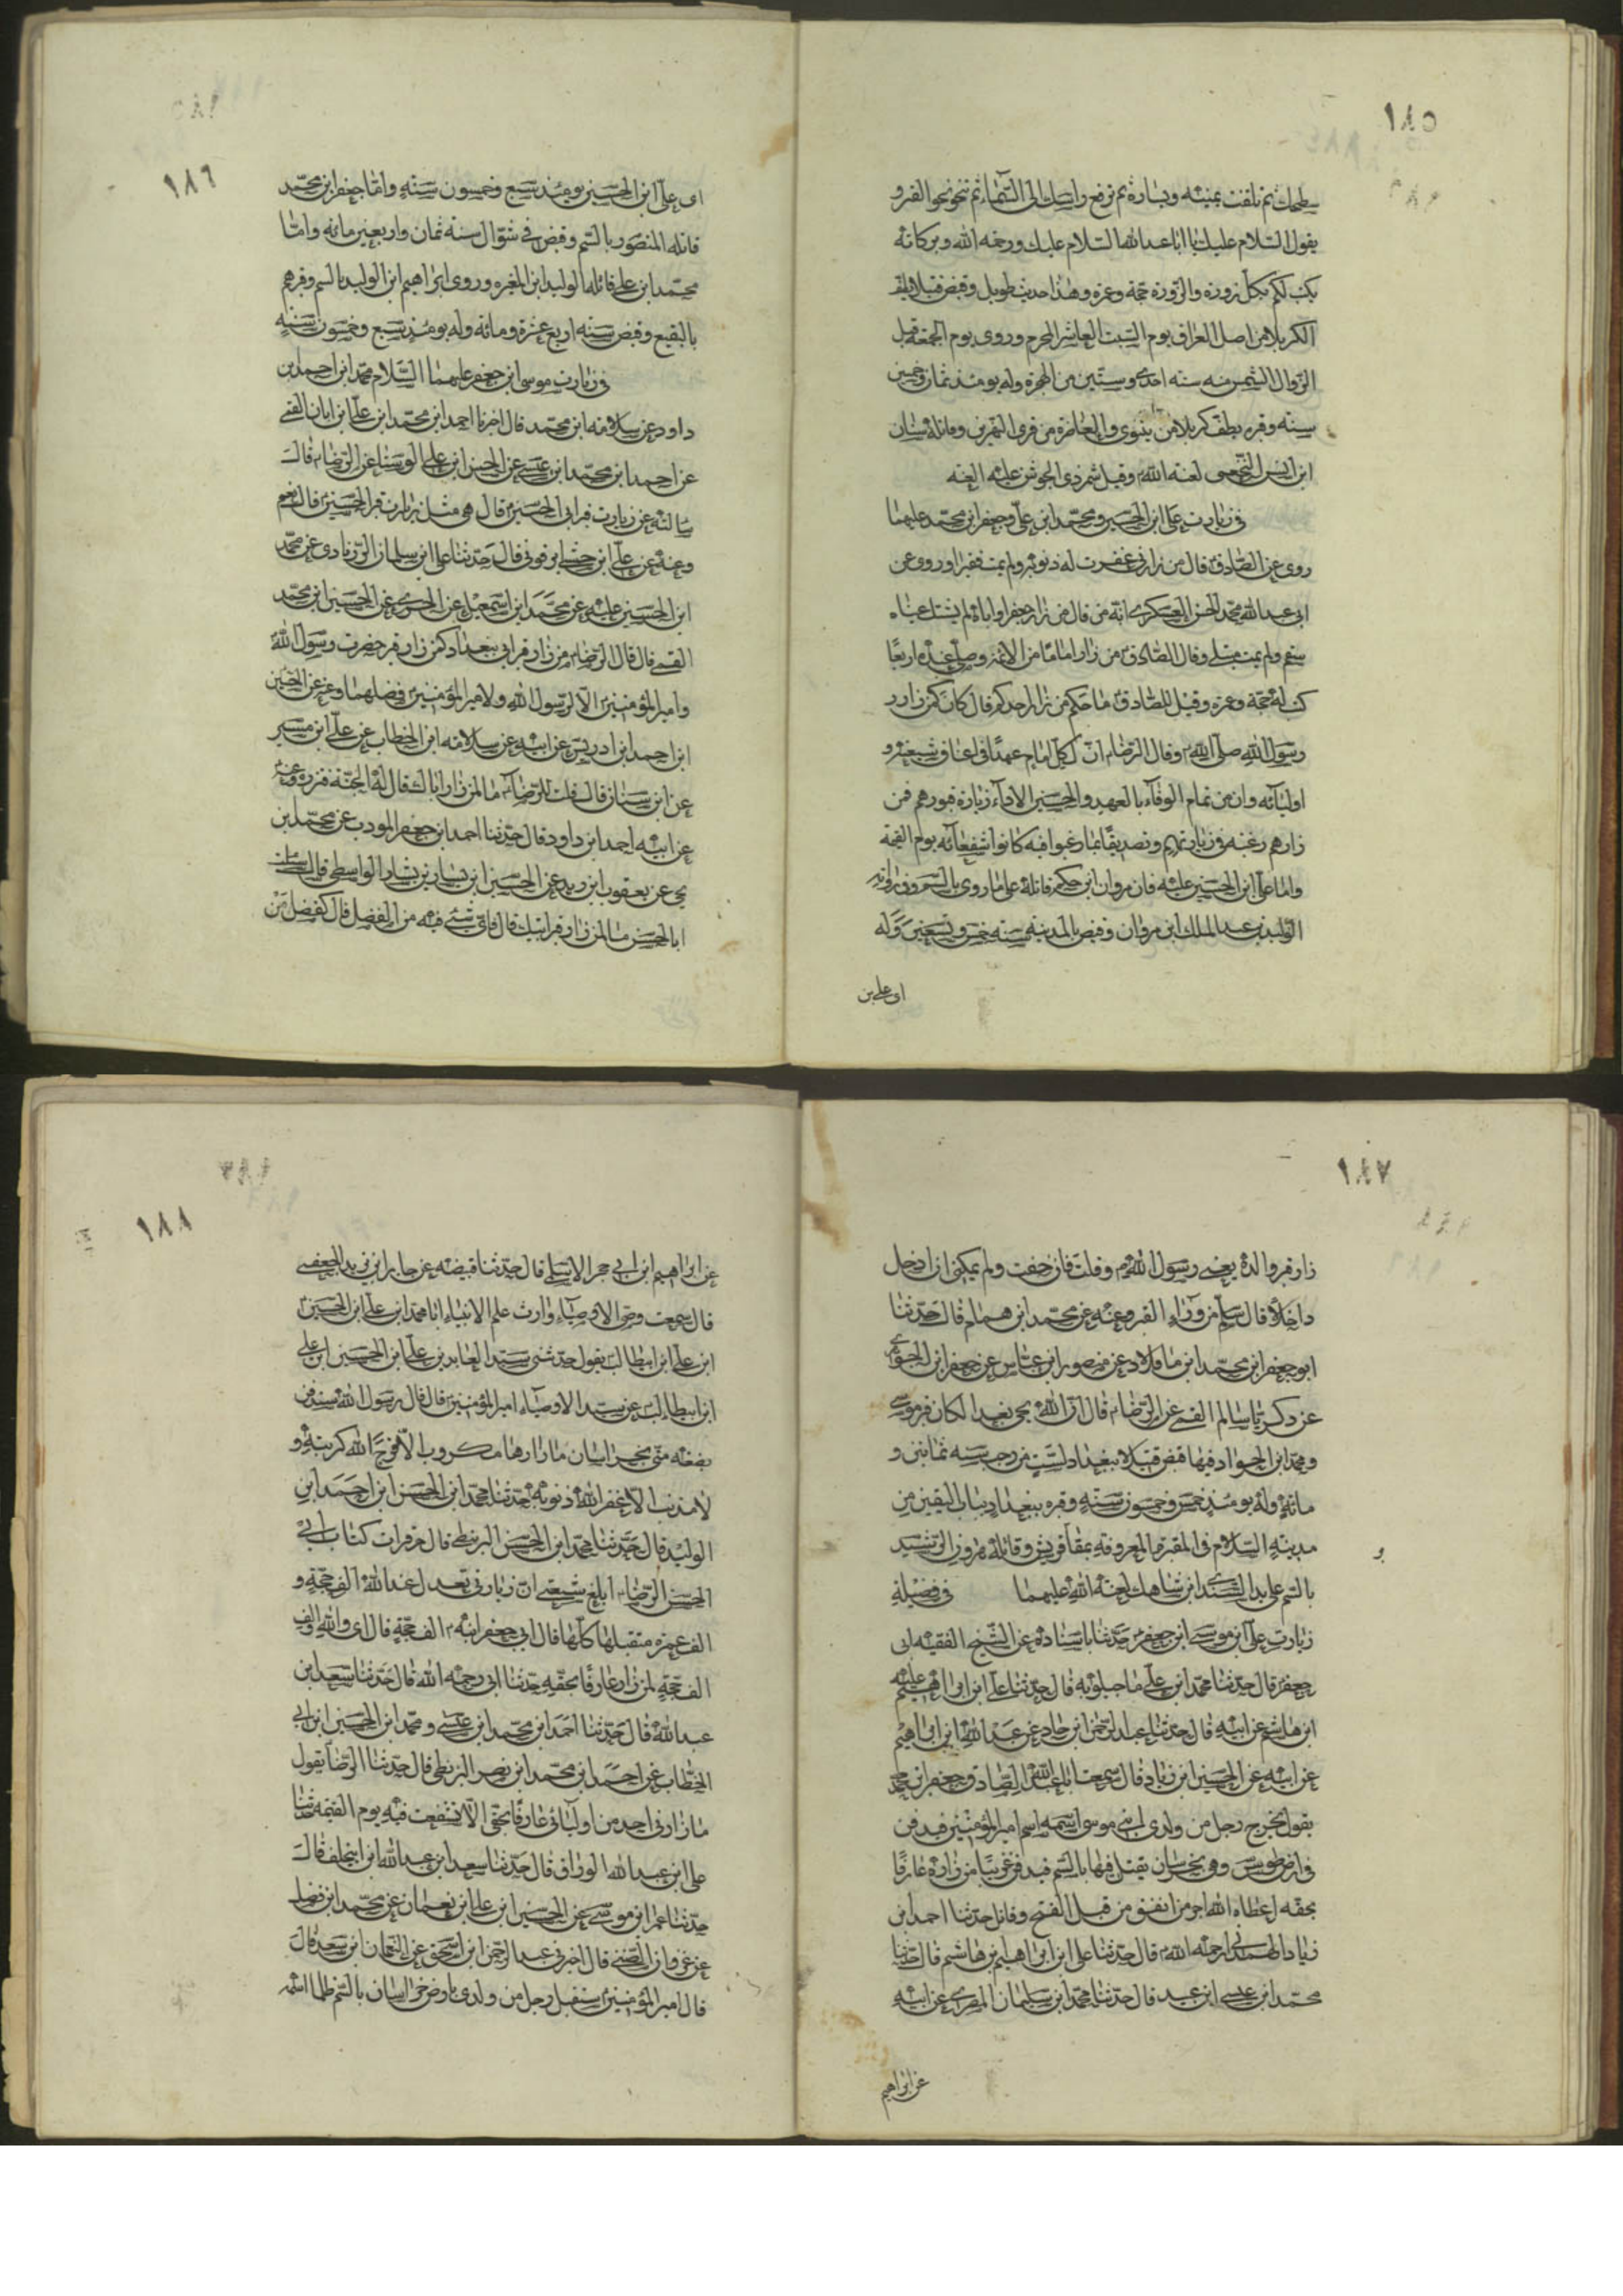 ١٨٥
سطحك ثم تلتفت يمينه ويساره ثم ترفع راسك الى السماء ثم تنحو نحو القبر و
يقول السلام عليك يا ابا عبد الله السلام عليك ورحمة الله وبركاته
يكتب لكم بكل زورة والزورة حجة وعمرة وهذا حديث طويل وقبض قتيلا بطف
الكربلا من اصل العراق يوم السبت العاشر المحرم وروى يوم الجمعة قبل
الزوال الشمس منه سنة احدى وستين من الهجرة وله يومئذ ثمان وخمسين
سنه وقبره بطف كربلا من نينوى والغاضره من قرى النهرين وقاتله سنان
ابن انس النخعى لعنه الله وقيل شمر ذى الجوشن عليه العنه
فى زيارت على ابن الحسين ومحمد ابن على وجعفر ابن محمد عليهما
روى عن الصادق قال من زارنى غفرت له ذنوبه ولم يمت فقيرا وروى عن
ابى عبد الله محمد الحسن العسكرى انه من قال من زار جعفرا واباه لم يشتك عيناه
سقم ولم يمت مبتلى وقال الصادق من زار اماما من الائمة وصلى عنده اربعا
كتب له حجة وعمرة وقيل للصادق ما حكم من زار احدكم قال كان كمن زار
رسول الله صلى الله وقال الرضا ان لكل امام عهدا فى اعناق شيعته و
اوليائه وان من تمام الوفاء بالعهد والحسين الاداء زيارة قبورهم فمن
زارهم رغبه فى زيارتهم وتصديقا بما رغبوا فيه كانوا شفعائه يوم القيمة
واما على ابن الحسين عليه فان مروان ابن حكم قاتله على ما روى بالسم وفى رواية
الوليد بن عبد الملك ابن مروان وقبض بالمدينة سنة خمس وتسعين وله
اى على بن
١٨٦
اى على ابن الحسين يومئذ سبع وخمسون سنة واما جعفر ابن محمد
قاتله المنصور بالسم وقبض فى شوال سنة ثمان واربعين مائه واما
محمد ابن على قاتله الوليد ابن المغيره وروى ابراهيم ابن الوليد بالسم وقبرهم
بالبقيع وقبض سنه اربع عشرة ومائه وله يومئذ سبع وخمسون سنه
فى زيارت موسى ابن جعفر عليهما السلام محمد ابن احمد بن
داود عن سلامه ابن محمد قال اخبرنا احمد ابن محمد ابن على ابن ابان القمى
عن احمد ابن محمد ابن عيسى عن الحسن ابن على الوشا عن الرضا قال
سالته عن زيارت قبر ابى الحسن قال هى مثل زيارت قبر الحسين قال نعم
وعنه عن على ابن حبشى ابن قونى قال حدثنا على ابن سليمان الزرادى عن محمد
ابن الحسين عليه عن محمد ابن اسمعيل عن الخيبرى عن الحسين ابن محمد
القمى قال قال الرضا من زار قبر ابى ببغداد كمن زار قبر حضرت رسول الله
وامير المؤمنين الا لرسول الله ولامير المؤمنين فضلهما وعن الحسين
ابن احمد ابن ادريس عن ابيه عن سلامه ابن الخطاب عن على ابن ميسر
عن ابن سنان قال قلت للرضا ما لمن زار اباك قال له الجنة فزره وعنه
عن ابيه احمد ابن داود قال حدثنا احمد ابن جعفر المودب عن محمد ابن
يحيى عن يعقوب ابن يزيد عن الحسين ابن بشار بن بشار الواسطى قال سالت
ابا الحسن ما لمن زار قبر ابيك قال فاى شئ فيه من الفضل قال كفضل من
١٨٧
زار قبر والده يعنى رسول الله وقلت فان خفت ولم يمكن ان ادخل
داخلا قال سلم من وراء القبر وعنه عن محمد ابن همام قال حدثنا
ابو جعفر ابن محمد ابن مافلاد عن منصور ابن عباس عن جعفر ابن الجوهرى
عن ذكريا سالم القمى عن الرضا قال ان الله نجى بغداد لمكان قبر موسى
ومحمد ابن الجواد فيها قبض قتيلا ببغداد لست من رجب سنه ثمانين و
مائه وله يومئذ خمس وخمسون سنه وقبره ببغداد بباب اليقين من
مدينه السلام فى المقبرة المعروفه بمقابر قريش وقاتله هرون الرشيد
بالسم على يد السندى ابن شاهك لعنه الله عليهما فى فضيلة
زيارت على ابن موسى ابن جعفر حدثنا باسناده عن الشيخ الفقيه ابى
جعفر قال حدثنا محمد ابن على ماجيلويه قال حدثنا على ابن ابراهيم عليه
ابن هاشم عن ابيه قال حدثنا عبد الرحمن ابن حماد عن عبد الله ابن ابراهيم
عن ابيه عن الحسين ابن زياد قال سمعت ابا عبد الله الصادق جعفر ابن محمد
يقول يخرج رجل من ولدى ابنى موسى اسمه اسم امير المؤمنين فيدفن
فى ارض طوس وهى بخراسان يقتل فيها بالسم فيدفن غريبا من زاره عارفا
بحقه اعطاه الله اجر من انفق من قبل الفتح وقاتل حدثنا احمد ابن
زياد الهمدانى رحمه الله قال حدثنا على ابن ابراهيم بن هاشم قال حدثنا
محمد ابن عيسى ابن عبيد قال حدثنا محمد ابن سليمان المصرى عن ابيه
عن ابراهيم
١٨٨
عن ابراهيم ابن ابى حجر الاسلمى قال حدثنا قبيضه عن جابر ابن يزيد الجعفى
قال سمعت وصى الاوصياء وارث علم الانبياء ابا محمد ابن على ابن الحسين
ابن على ابن ابيطالب يقول حدثنى سيد العابدين على ابن الحسين ابن على
ابن ابيطالب عن سيد الاوصياء امير المؤمنين قال قال رسول الله ستدفن
بضعه منى بخراسان ما زارها مكروب الا فرج الله كربته و
لا مذنب الا غفر الله ذنوبه حدثنا محمد ابن الحسن ابن احمد ابن
الوليد قال حدثنا محمد ابن الحسن البزنطى قال قرات كتاب ابى
الحسن الرضا ابلغ شيعتى ان زيارتى تعدل عند الله الف حجة و
الف عمره متقبلها كلها قال ابى جعفر ابنه الف حجة قال اى والله والف
الف حجة لمن زاره عارفا بحقه حدثنا ابى رحمه الله قال حدثنا سعد ابن
عبد الله قال حدثنا احمد ابن محمد ابن عيسى ومحمد ابن الحسين ابن ابى
الخطاب عن احمد ابن محمد ابن نصر البزنطى قال حدثنا الرضا يقول
ما زارنى احد من اوليائى عارفا بحقى الا تشفعت فيه يوم القيمه حدثنا
على ابن عبد الله الوراق قال حدثنا سعد ابن عبد الله ابن ابيخلف قال
حدثنا عمران ابن موسى عن الحسين ابن على ابن نعمان عن محمد ابن فضيل
عن غزوان الضبى قال اخبرنى عبد الرحمن ابن اسحق عن النعمان ابن سعد قال
قال امير المؤمنين سيقتل رجل من ولدى بارض خراسان بالسم ظلما اسمه